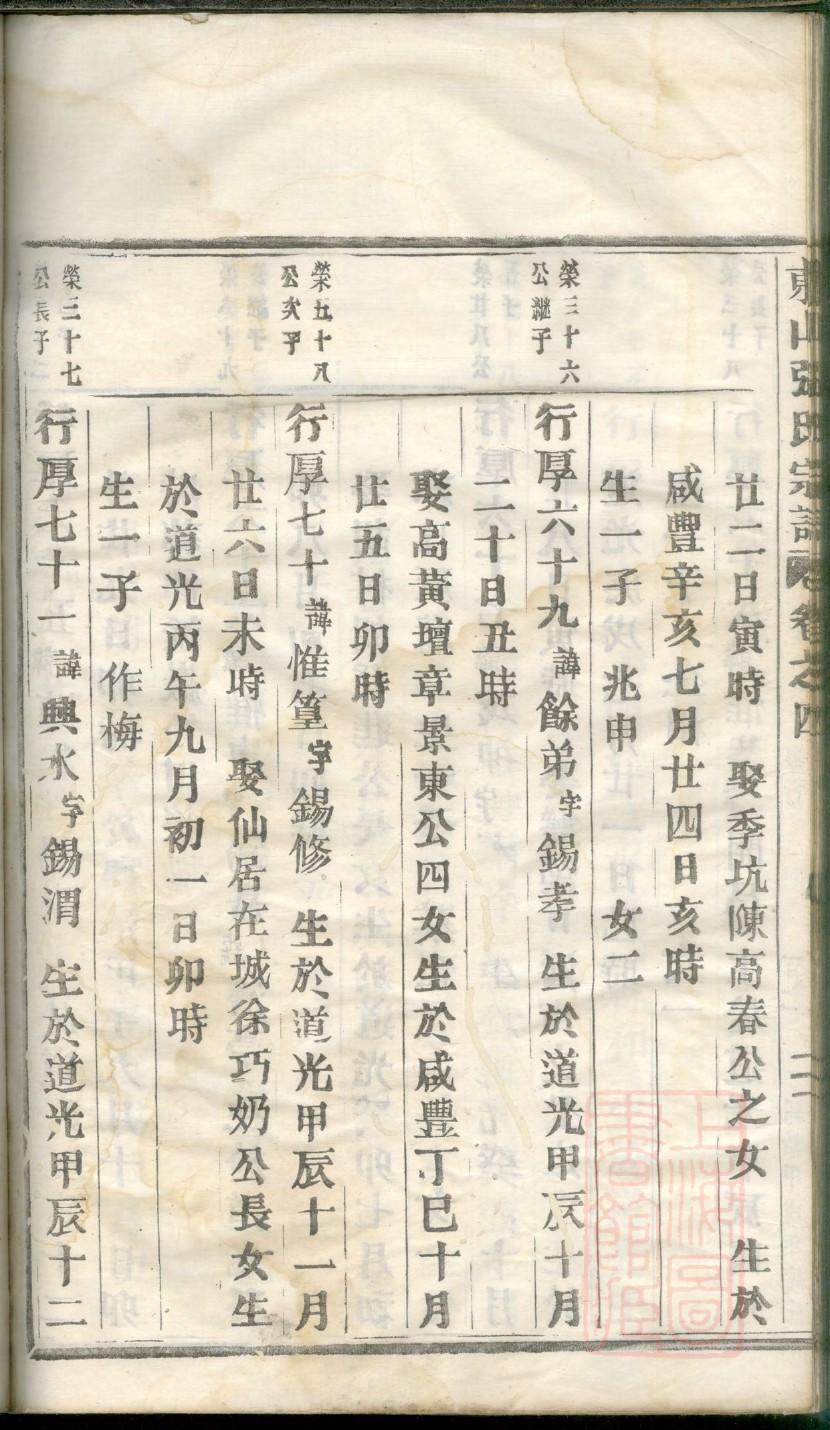 東山張氏宗譜 卷之四
廿二日寅時 娶季坑陳高春公之女 生於
咸豐辛亥七月廿四日亥時
生一子 兆申 女二
榮三十六
公繼子
行厚六十九 諱 餘弟 字 錫孝 生於道光甲辰十月
二十日丑時
娶高黃壇章景東公四女生於咸豐丁巳十月
廿五日卯時
榮五十八
公次子
行厚七十 諱 惟篁 字 錫修 生於道光甲辰十一月
廿六日未時 娶仙居在城徐巧奶公長女生
於道光丙午九月初一日卯時
生一子 作梅
榮三十七
公長子
行厚七十一 諱 興水 字 錫渭 生於道光甲辰十二
上海圖
書館藏